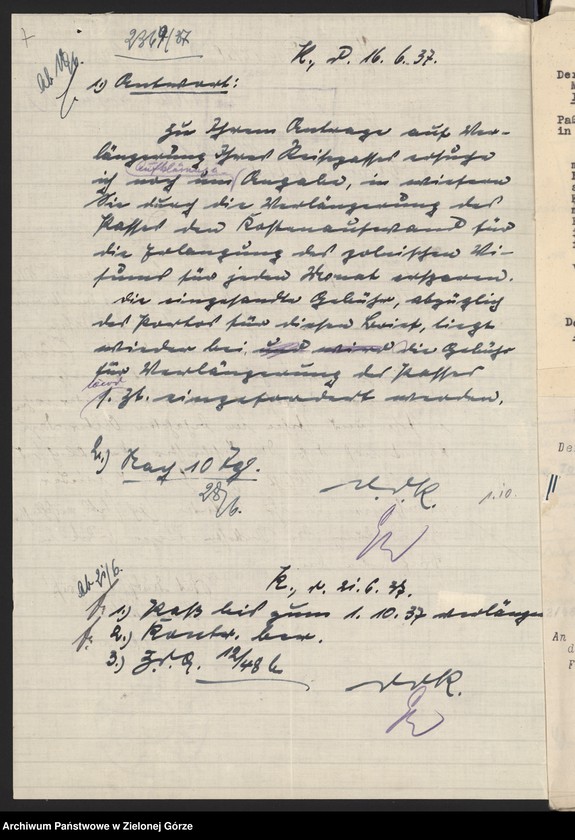 2369/37
K., d. 16. 6. 37.
ab 18/6.
1) Antwort:
Zu Ihrem Antrage auf Ver-
längerung Ihres Reisepasses ersuche
ich noch um Angabe, in wiefern
Sie durch die Verlängerung des
Passes den Kostenaufwand für
die Erlangung des polnischen Vi-
sums für jeden Monat ersparen.
Die eingesandte Gebühr, abzüglich
des Portos für diesen Brief, liegt
wieder bei, und wird die Gebühr
für Verlängerung des Passes
s. Zt. eingefordert werden.
2.) Nach 10 Tg.
28/6.
D. d. K.
1.10.
ab 21/6.
K., d. 21. 6. 37.
1.) Paß bis zum 1. 10. 37 verlänger
2.) Kontr. ber.
3.) Z. d. A. 12/48
D. d. K.
Paß
in
An
d
F
Archiwum Państwowe w Zielonej Górze